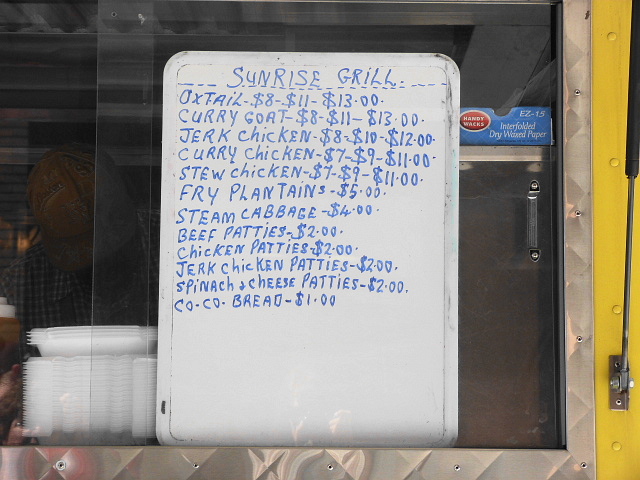 SUNRISE GRILL.
OXTAIL-$8-$11-$13.00.
CURRY GOAT-$8-$11-$13.00.
JERK CHICKEN-$8-$10-$12.00.
CURRY CHICKEN-$7-$9-$11.00.
STEW CHICKEN-$7-$9-$11.00.
FRY PLANTAINS-$5.00.
STEAM CABBAGE-$4.00.
BEEF PATTIES-$2.00.
CHICKEN PATTIES-$2.00.
JERK CHICKEN PATTIES-$2.00.
SPINACH & CHEESE PATTIES-$2.00.
CO-CO-BREAD-$1.00
EZ-15
HANDY WACKS
Interfolded
Dry Waxed Paper